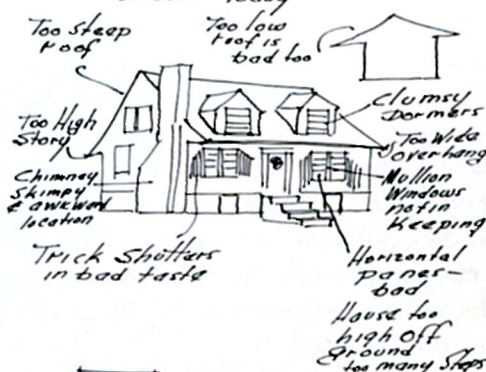 Too Steep
roof
Too low
roof is
bad too
Clumsy
Dormers
Too High
Story
Too Wide
Overhang
Chimney
Skimpy
& awkward
location
Mullion
Windows
not in
Keeping
Trick Shutters
in bad taste
Horizontal
panes-
bad
House too
high off
ground
too many Steps